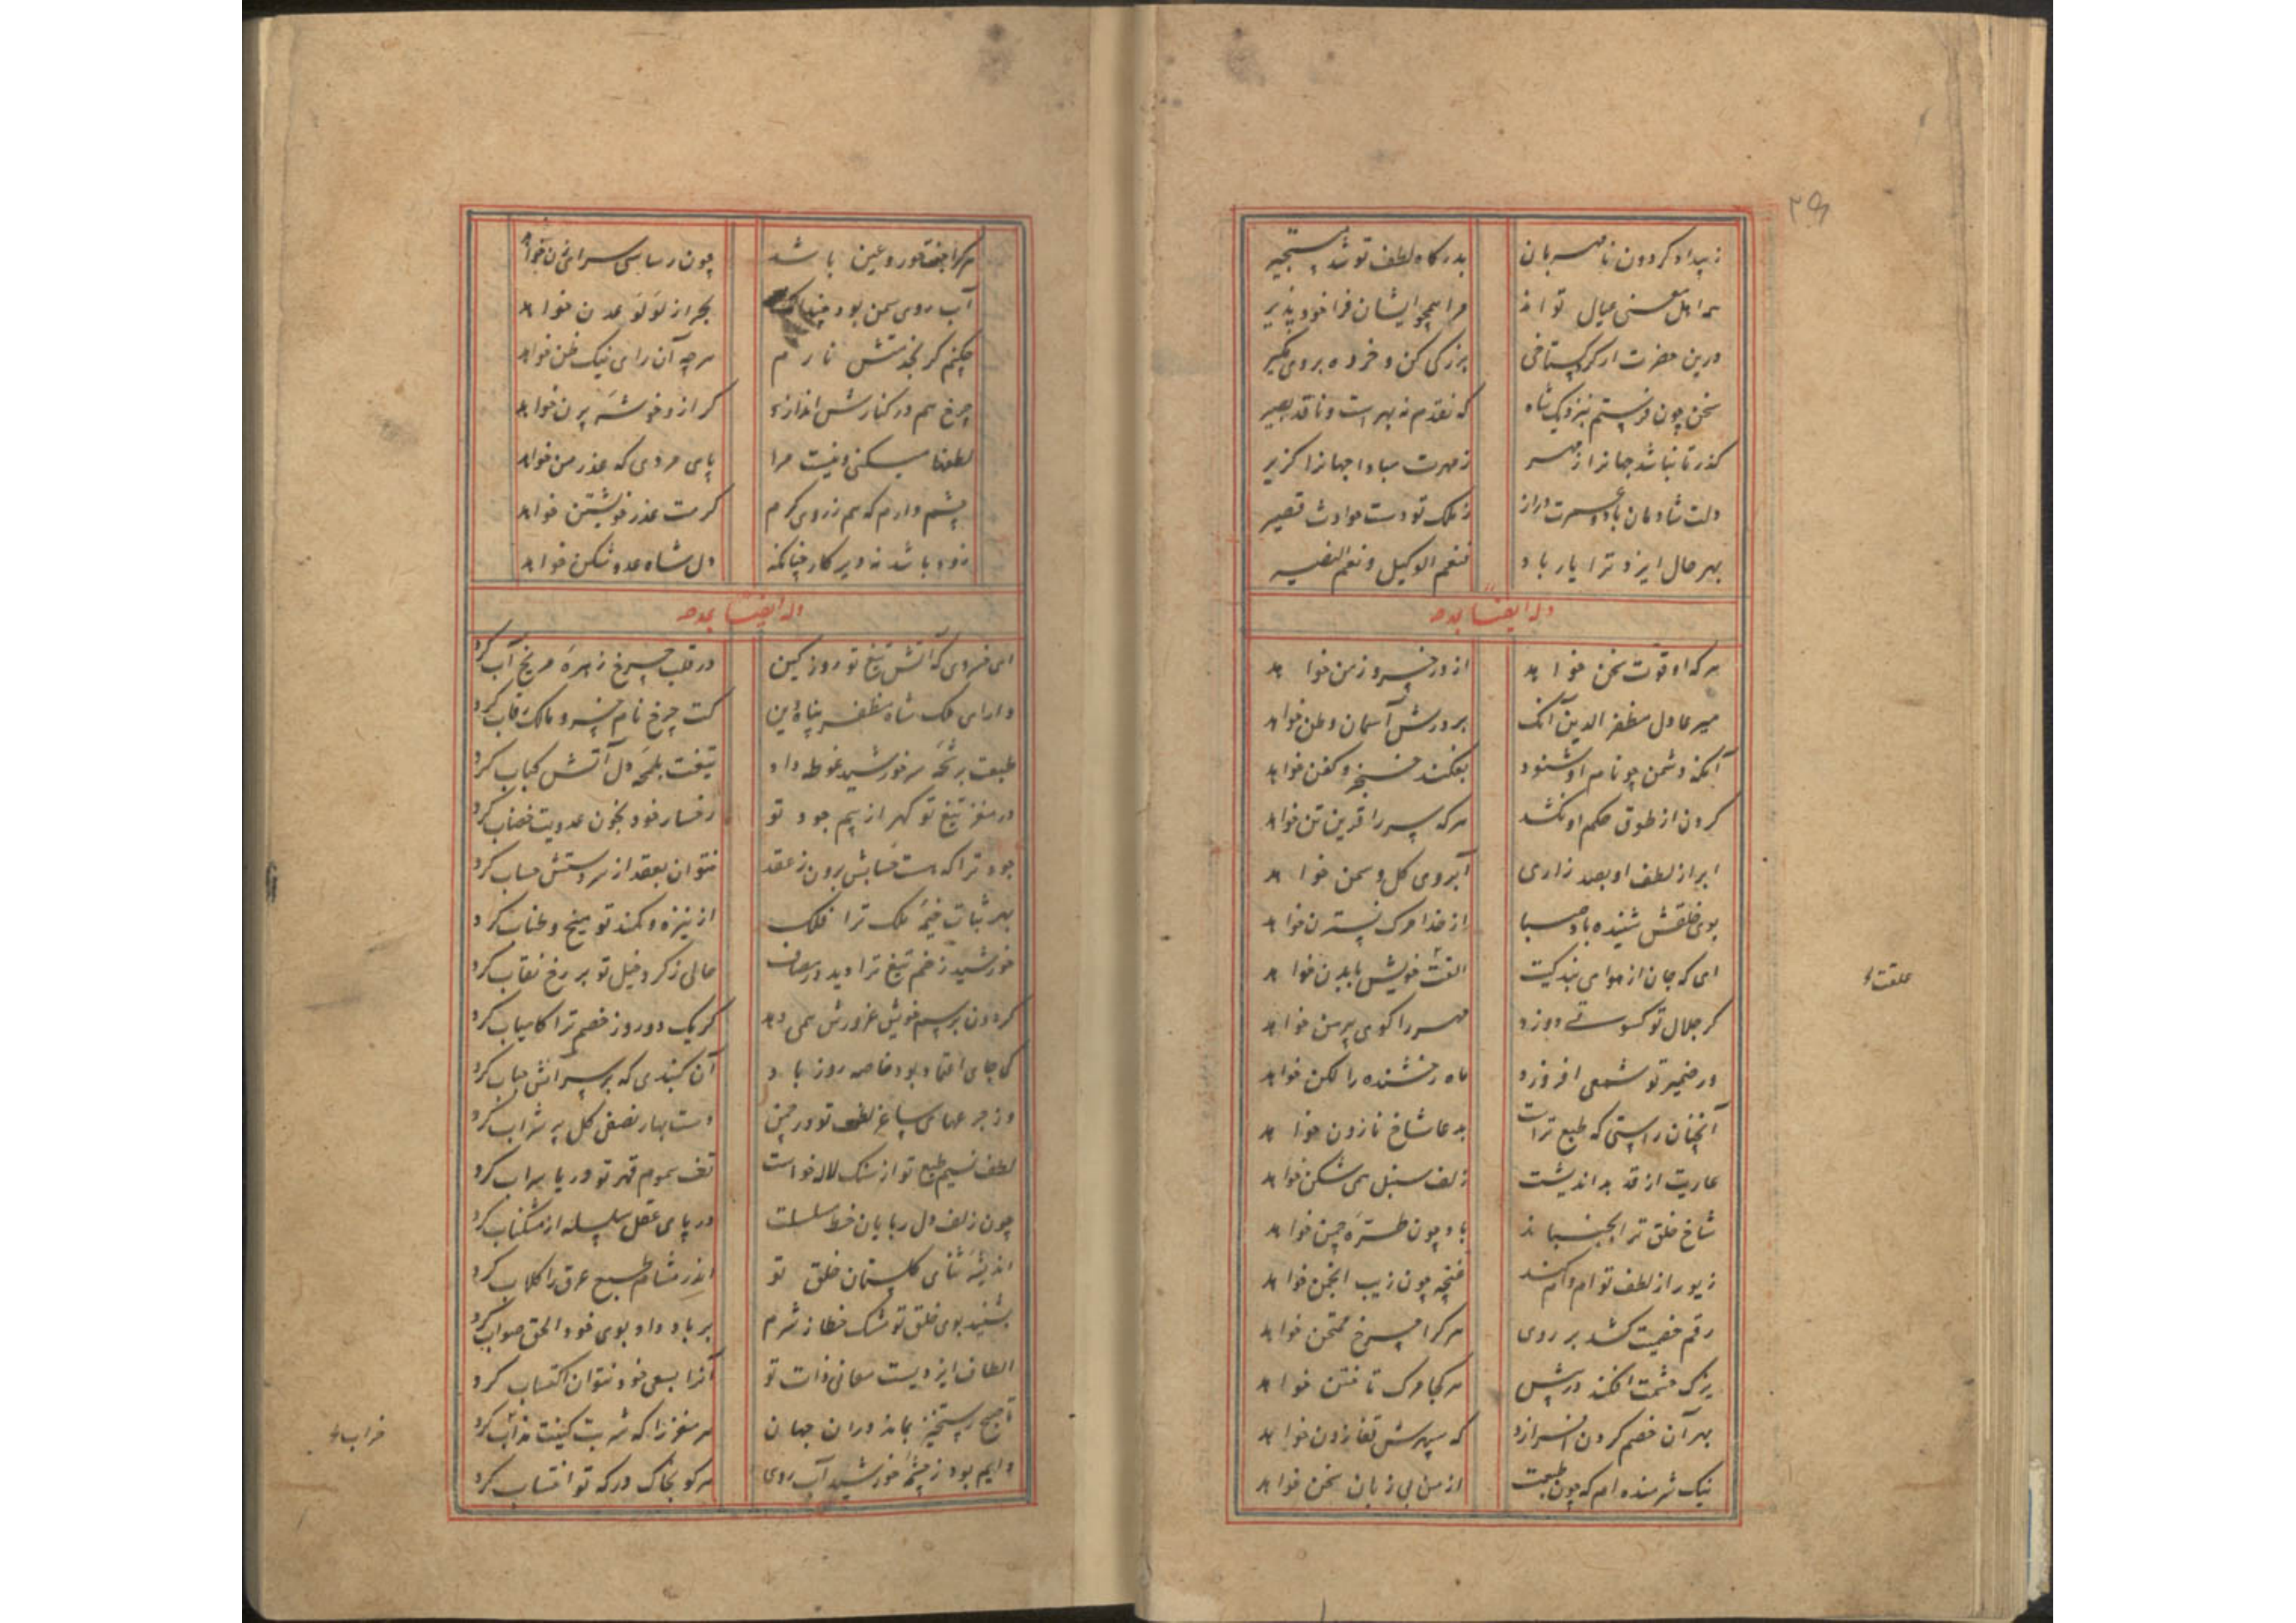 ۲۹
زبیداد کردون نامهربان بدرکاه لطف تو شد مستجیر
همه اهل معنی عیال تو اند مرا همچو ایشان فرا خود پذیر
درین حضرت ار کرد کستاخی بزرکی کن و خرده بر وی مکیر
سخن چون فرستم بنزدیک شاه که نقدم نبهره است و ناقد بصیر
کذر تا نباشد جهانرا ز مهر ز مهرت مبادا جهانرا کزیر
دلت شادمان باد و عمرت دراز ز ملک تو دست حوادث قصیر
بهر حال ایزد ترا یار باد فنعم الوکیل و نعم النصیر
وله ایضا یمدحه
هر که او قوت سخن خواهد از در خسرو زمن خواهد
میر عادل مظفر الدین آنک بر درش آسمان وطن خواهد
آنکه دشمن چو نام او شنود بفکند خنجر و کفن خواهد
کردن از طوق حکم او نکشد هر که سر را قرین تن خواهد
ابر از لطف او بصد زاری آبروی کل و سمن خواهد
بوی خلقش شنیده باد صبا از خدا مرک نسترن خواهد
ای که جان از هوای بندکیت الفت خویش با بدن خواهد
کر جلال تو کسوتی دوزد مهر را کوی پیرهن خواهد
ور ضمیر تو شمعی افروزد ماه رخشنده را لکن خواهد
آنچنان راستی که طبع تراست بدعا شاخ نارون خواهد
عاریت از قد بداندیشت زلف سنبل همی شکن خواهد
شاخ خلق ترا بجنباند باد چون طره چمن خواهد
زیور از لطف تو ام وام کند غنچه چون زیب انجمن خواهد
رقم خصمیت کشد بر روی هر کرا چرخ ممتحن خواهد
یزک حشمت افکند در پیش هر کجا مرک تاختن خواهد
بهر آن خصم کردن افرازد که سپهرش قفا زدن خواهد
نیک شرمنده ام که چون طبعت از من بی زبان سخن خواهد
هر کرا جفت حور و عین باشد چون رسایی سرای تن خواهد
آب روی سمن بود چندانک بحر از لؤلؤ عدن خواهد
چکنم کر بخدمتش نارم هر چه آن رای نیک ظن خواهد
چرخ هم در کنارش اندازد کر ازو خوشه پرن خواهد
لطفها میکنی و نیست مرا پای مردی که عذر من خواهد
چشم دارم که هم ز روی کرم کرمت عذر خویشتن خواهد
زود باشد نه دیر کار چنانکه دل شاه عدو شکن خواهد
وله ایضا یمدحه
ای خسروی که آتش تیغ تو روز کین در قلب چرخ زهره مریخ آب کرد
دارای ملک شاه مظفر پناه دین کت چرخ نام خسرو مالک رقاب کرد
طبعت برشحه سر خورشید غوطه داد تیغت بلمحه دل آتش کباب کرد
در مغز تیغ تو کهر از بیم جود تو رخسار خود بخون عدویت خضاب کرد
جود ترا که هست حسابش برون ز عقد نتوان بعقد از سر دستش حساب کرد
بهر ثبات خیمه ملک ترا فلک از نیزه و کمند تو میخ و طناب کرد
خورشید زخم تیغ ترا دید در مصاف حالی ز کرد خیل تو بر رخ نقاب کرد
کردون برسم خویش غرورش همی دهد کر یک دو روز خصم ترا کامیاب کرد
کی جای اعتماد بود خاصه روز باد آن کنبدی که بر سر آتش حباب کرد
وز جرعهای ساغر لطف تو در چمن دست بهار نصفی کل پر شراب کرد
لطف نسیم طبع تو از سنک لاله خواست تف سموم قهر تو دریا سراب کرد
چون زلف دل ربایان خط سلسلت در پای عقل سلسله از مشکناب کرد
اندیشه ثنای کلستان خلق تو اندر مشام طبع عرق را کلاب کرد
بشنید بوی خلق تو مشک خطا ز شرم بر باد داد بوی خود الحق صواب کرد
الطاف ایزدیست معانی ذات تو آنرا بسعی خود نتوان اکتساب کرد
تا صبح رستخیز نماند دران جهان هر مغز را که شربت کینت خراب کرد
دایم بود ز چشمه خورشید آب روی هر کو بخاک درکه تو انتساب کرد